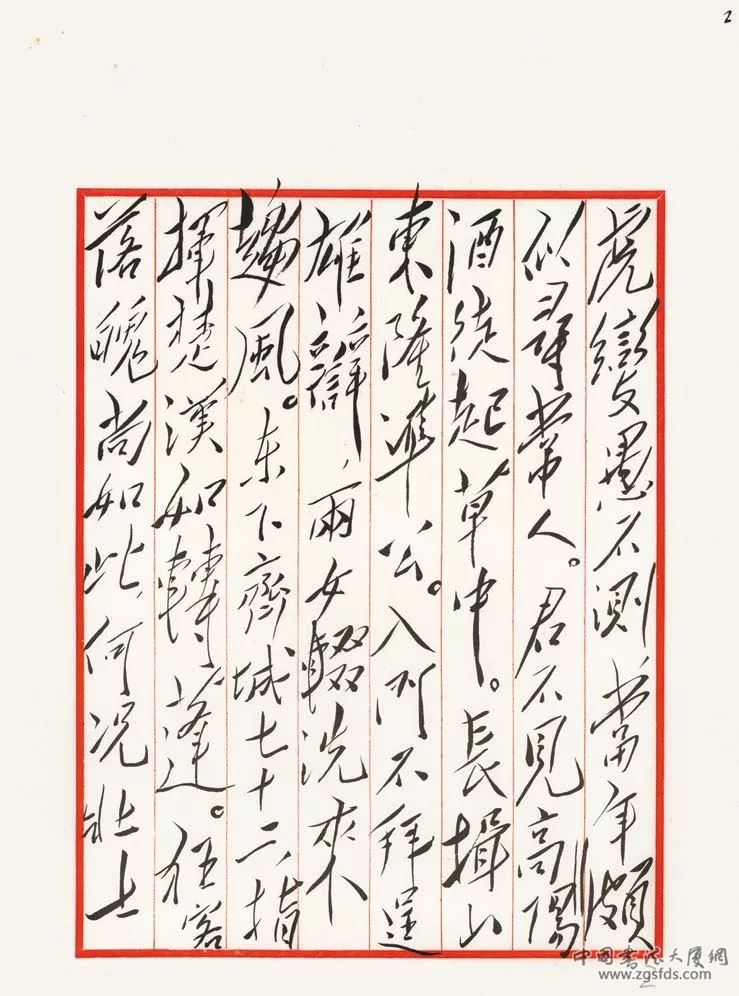 2
虎變愚不測，當年頗
似尋常人。君不見高陽
酒徒起草中。長揖山
東隆準公。入門不拜逞
雄辯，兩女輟洗來
趨風。东下齊城七十二，指
揮楚漢如轉蓬。狂客
落魄尚如此，何况壯士
中国书法大厦網
www.zgsfds.com